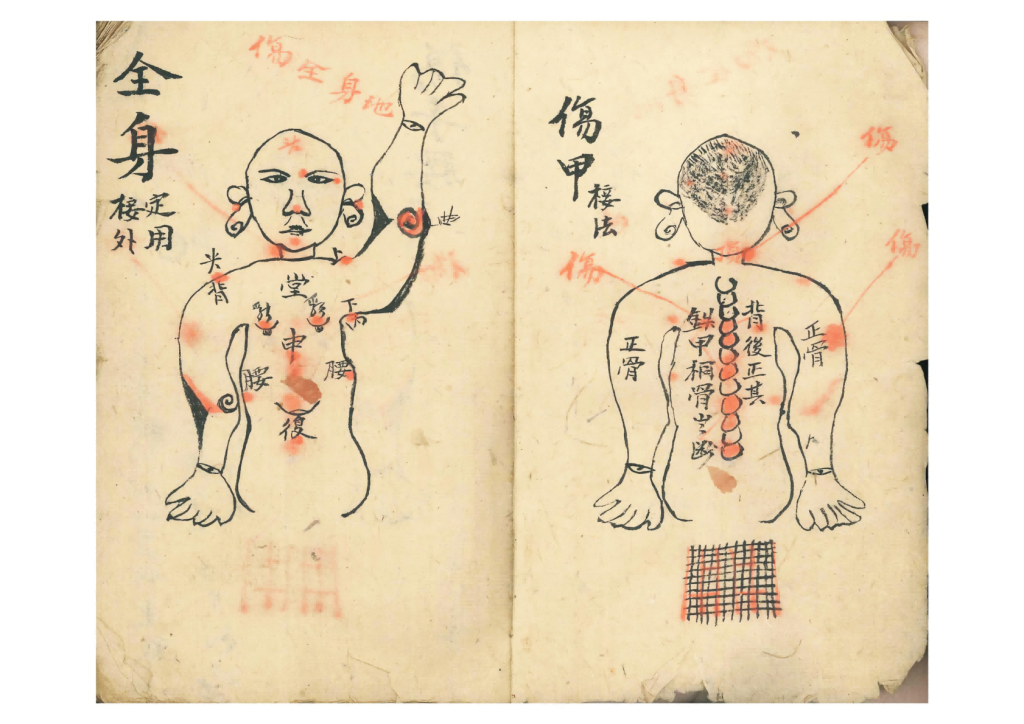 全身
接定
外用
傷全身地
尖
背
上
堂
乳
乳
下
中
腰
腰
復
曲
傷甲
接法
傷
傷
傷
正骨
正骨
背後正其
鉄甲桐骨
断